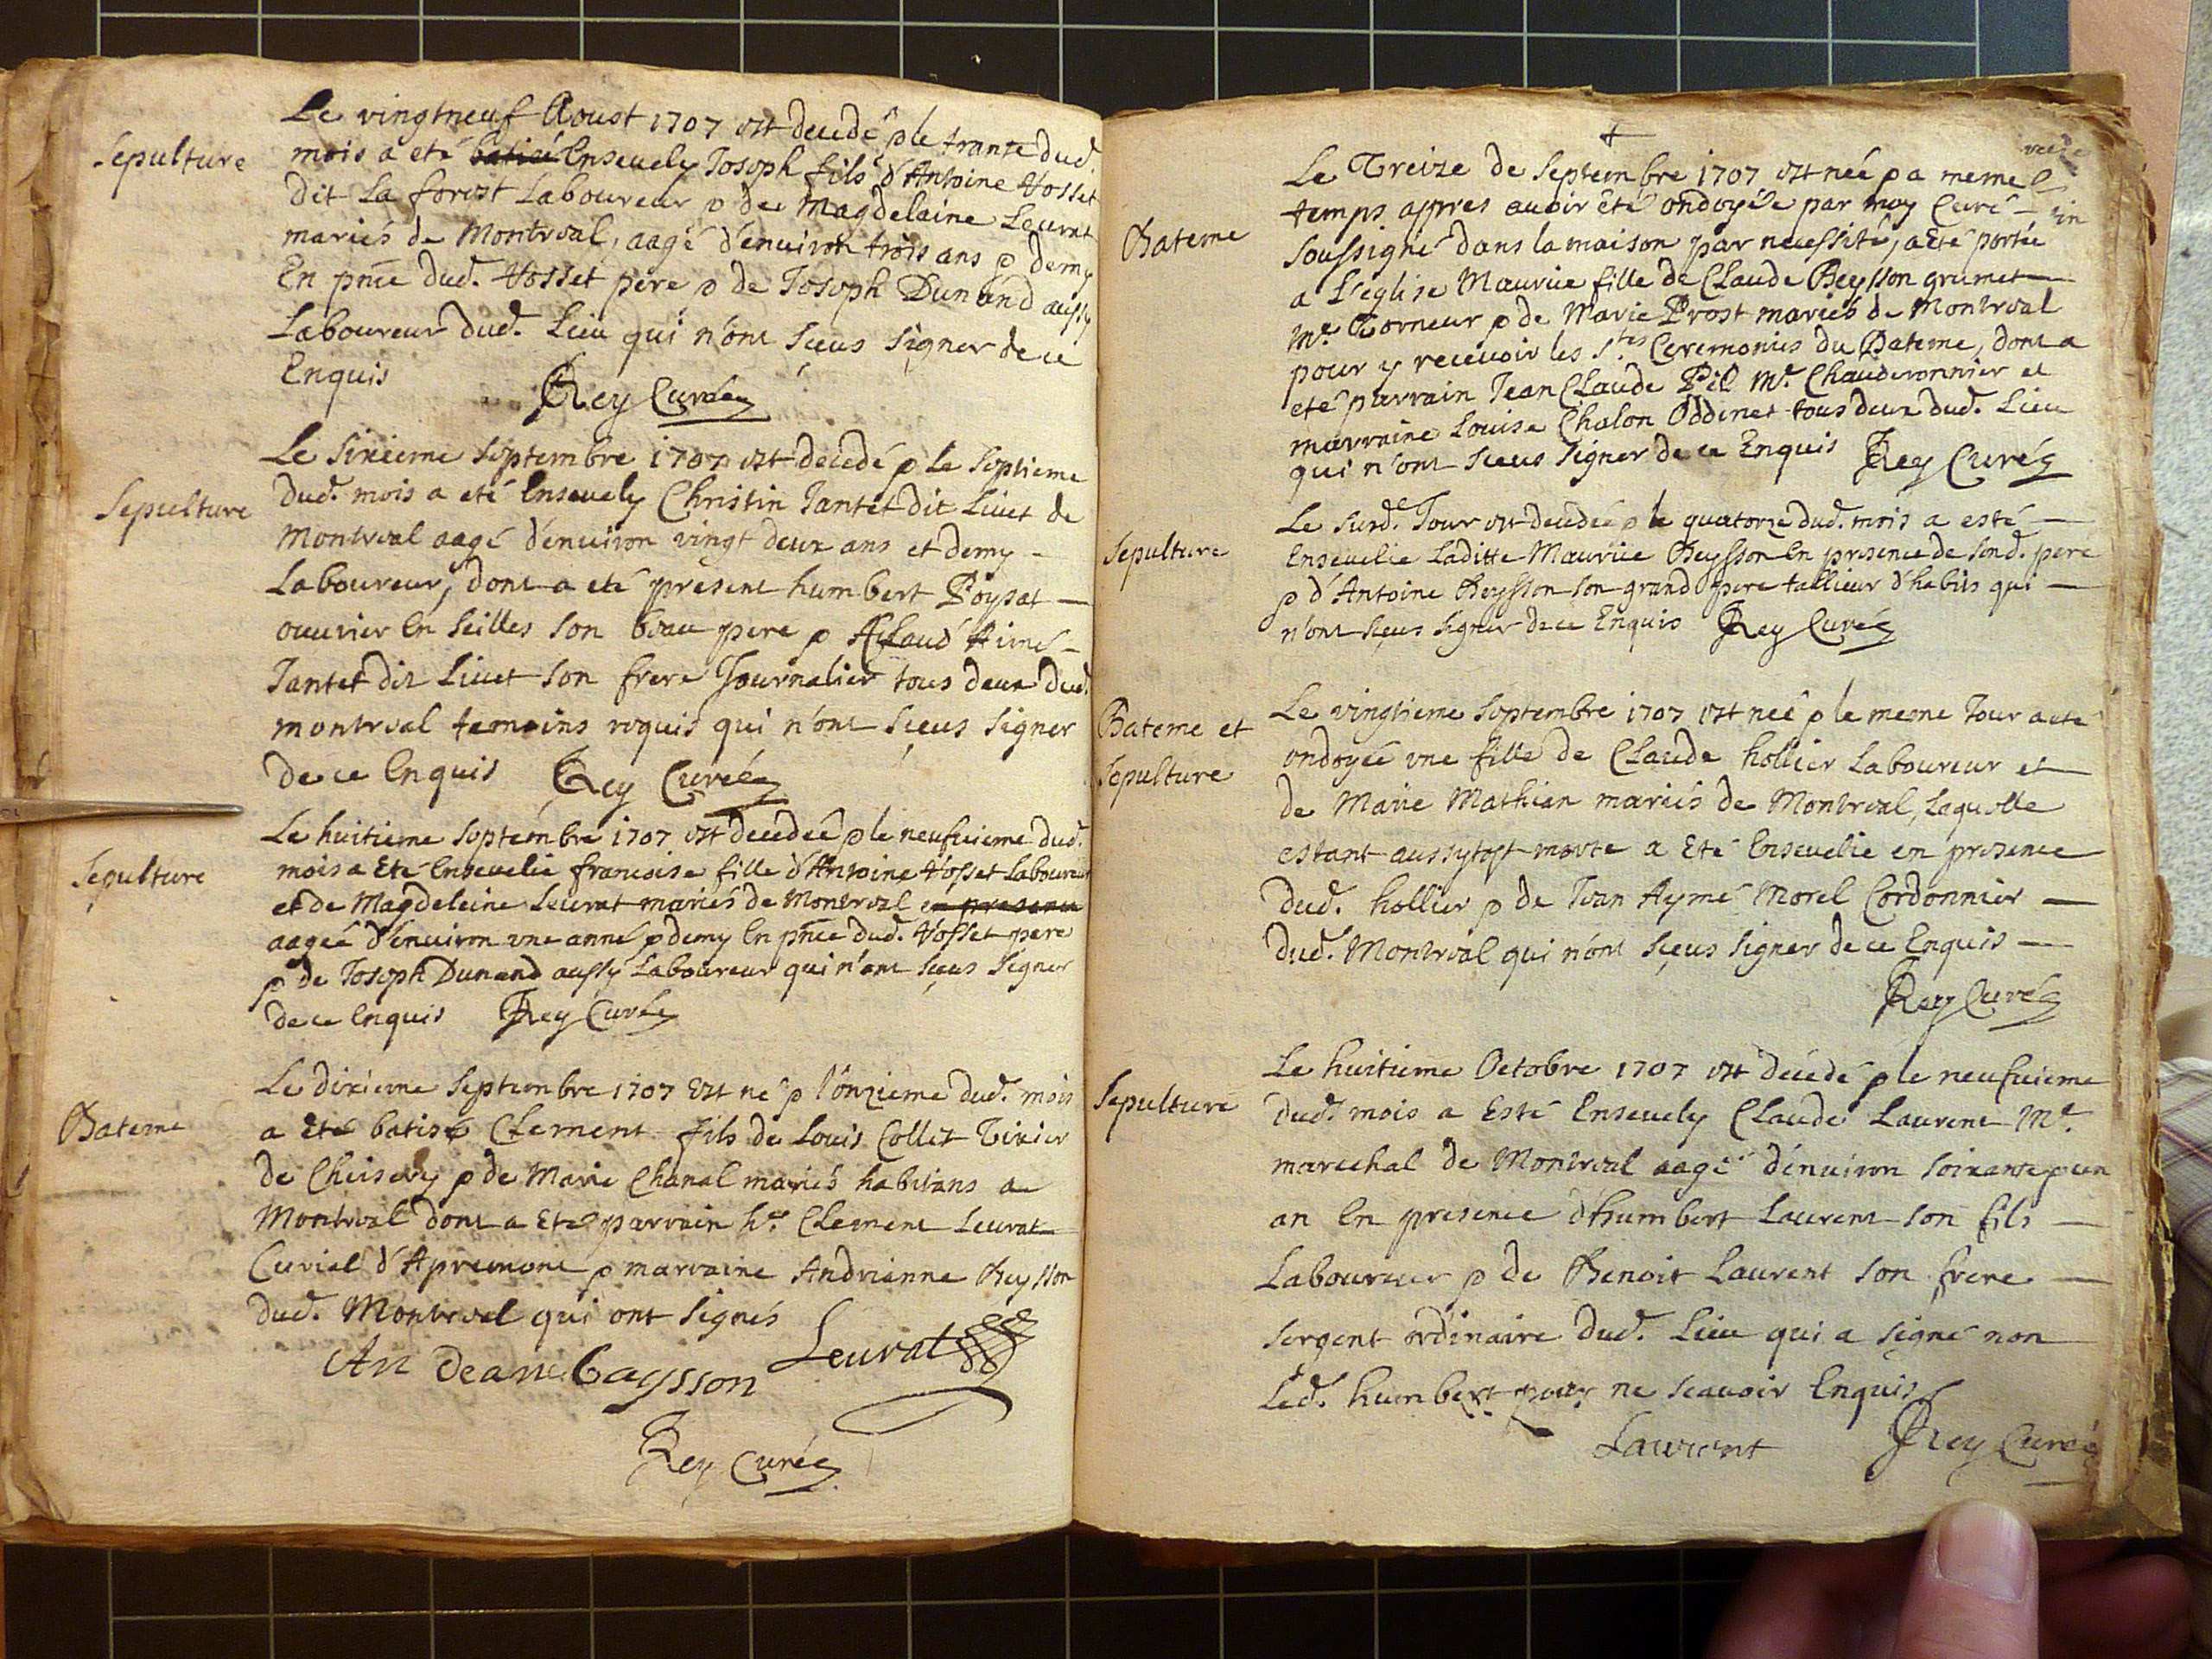 Sepulture
Le vingtneuf Aoust 1707 est decedé & le trante dud.
mois a eté batisé Ensevely Joseph fils d'Antoine Vosset
dit La forest Laboureur & de Magdelaine Leurat
mariés de Montreal, aagé d'enuiron trois ans & demy
En pn̄ce dud. Vosset pere & de Joseph Dunand aussy
Laboureur dud. Lieu qui n'ont sçeus signer de ce
Enquis
Rey Curé
Sepulture
Le sixieme septembre 1707 est decedé & Le septieme
dud. mois a eté Ensevely Christin Jantet dit Liuet de
Montreal aagé d'enuiron vingt deux ans et demy -
Laboureur, dont a eté present humbert Poysat —
ouurier En seilles son beau pere & Claud' Aimé -
Jantet dit Liuet son frere Journalier tous deux dud.
montreal temoins requis qui n'ont sçeus signer
de ce Enquis Rey Curé
Sepulture
Le huitieme septembre 1707 est decedeé & le neufuieme dud.
mois a Eté Ensevelie francoise fille d'Antoine Vosset Laboureur
et de Magdeleine Leurat mariés de Montreal en presence
aageé d'enuiron vne anné & demy En pn̄ce dud. Vosset pere
& de Joseph Dunand aussy Laboureur qui n'ont sçeus signer
de ce Enquis Rey Curé
Bateme
Le dixieme septembre 1707 Est né & l'onzieme dud. mois
a Eté batisé Clement fils de Louis Collet Tixier
de Cheisery & de Marie Chanal mariés habitans a
Montreal dont a Eté parrain hr. Clement Leurat
Curial d'Apremont & marraine Andrianne Beysson
dud. Montreal qui ont signés
An deane baysson Leurat
Rey Curé
Bateme
Le Treize de septembre 1707 est neé & a meme
temps appres auoir eté ondoyéé par moy Curé —
soussigné dans la maison par necessité, a Eté portée
a L'eglise Maurice fille de Claude Beysson grumet —
Me. Torneur & de Marie Prost mariés de Montreal
pour y receuoir les Stes Ceremonies du Bateme, dont a
eté parrain Jean Claude Pil Me. Chauderonnier et
marraine Louise Chalon Oddinet tous deux dud. Lieu
qui n'ont sceus signer de ce Enquis Rey Curé
Sepulture
Le surd. Jour est decedeé & le quatorze dud. mois a esté —
Ensevelie Laditte Maurice Beysson En presence de sond. pere
& d'Antoine Beysson son grand pere tallieur d'habits qui —
n'ont sçeus signer de ce Enquis Rey Curé
Bateme et
Sepulture
Le vingtieme septembre 1707 est neé & le meme Jour a eté
ondoyée vne fille de Claude hollier Laboureur et
de Marie Mathian mariés de Montreal, Laquelle
estant aussytost morte a Eté Ensevelie en presence
dud. hollier & de Jean Aymé Morel Cordonnier —
dud. Montreal qui n'ont sçeus signer de ce Enquis —
Rey Curé
Sepulture
Le huitieme Octobre 1707 est decedé & le neufuieme
dud. mois a Esté Ensevely Claude Laurent Me.
marechal de Montreal aagé d'enuiron soixante & un
an En presence d'humbert Laurent son fils —
Laboureur & de Benoit Laurent son frere —
sergent ordinaire dud. Lieu qui a signé non
Led. humbert pour ne scauoir Enquis
Laurent Rey Curé